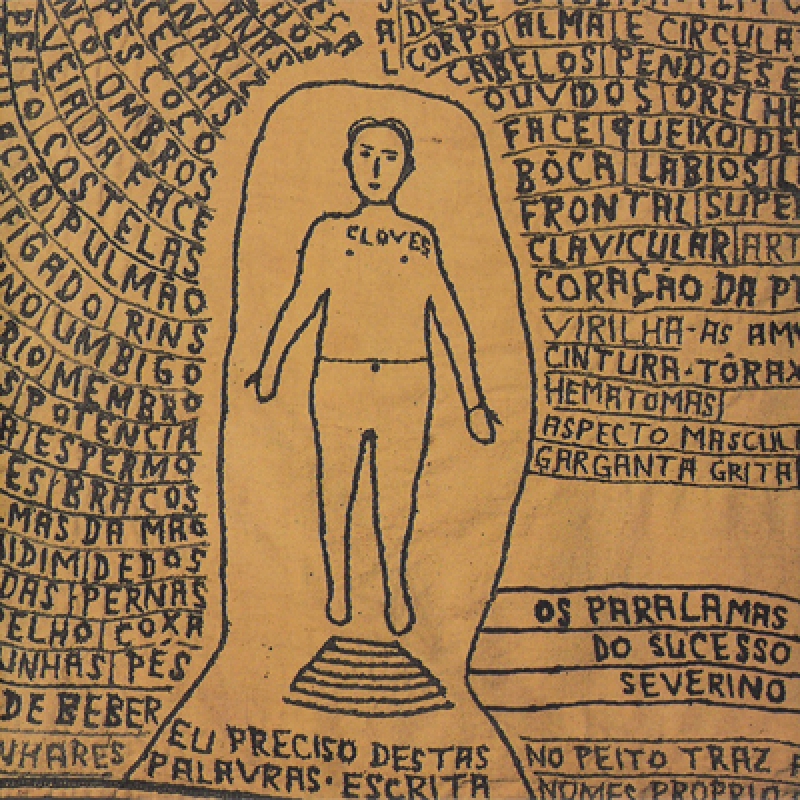 NARIZ
CELHAS
PES COÇO
OMBROS
VEIA DA FACE
PEITO COSTELAS
PULMÃO
FIGADO RINS
UMBIGO
MEMBRO
POTENCIA
ESPERMA
BRAÇOS
DA MÃO
PERNAS
COXA
UNHAS PÉS
DE BEBER
CLOVES
DESSE
CORPO ALMA E CIRCULA
CABELOS PENDÕES E
OUVIDOS ORELH
FACE QUEIXO DE
BÔCA LABIOS L
FRONTAL SUPE
CLAVICULAR ART
CORAÇÃO DA P
VIRILHA-AS AM
CINTURA·TÔRAX
HEMATOMAS
ASPECTO MASCUL
GARGANTA GRITA
OS PARALAMAS
DO SUCESSO
SEVERINO
EU PRECISO DESTAS
PALAVRAS·ESCRITA
NO PEITO TRAZ
NOMES PROPRIO